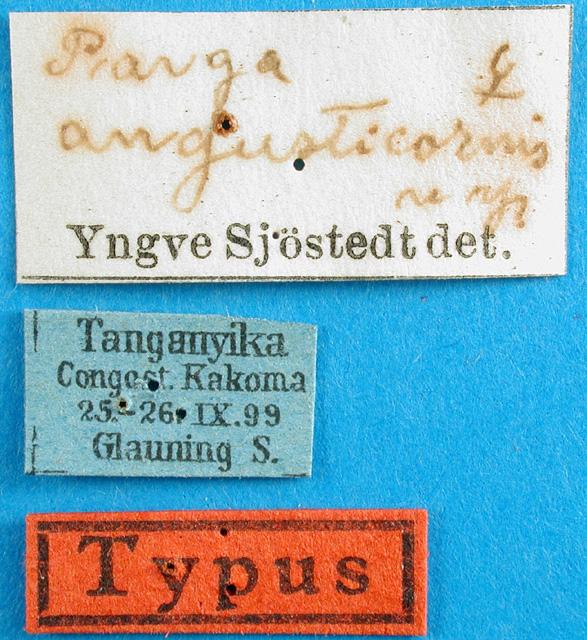 Parga ♀
angusticornis
n. sp.
Yngve Sjöstedt det.
Tanganyika
Congost. Kakoma
25.-26. IX. 99
Glauning S.
Typus